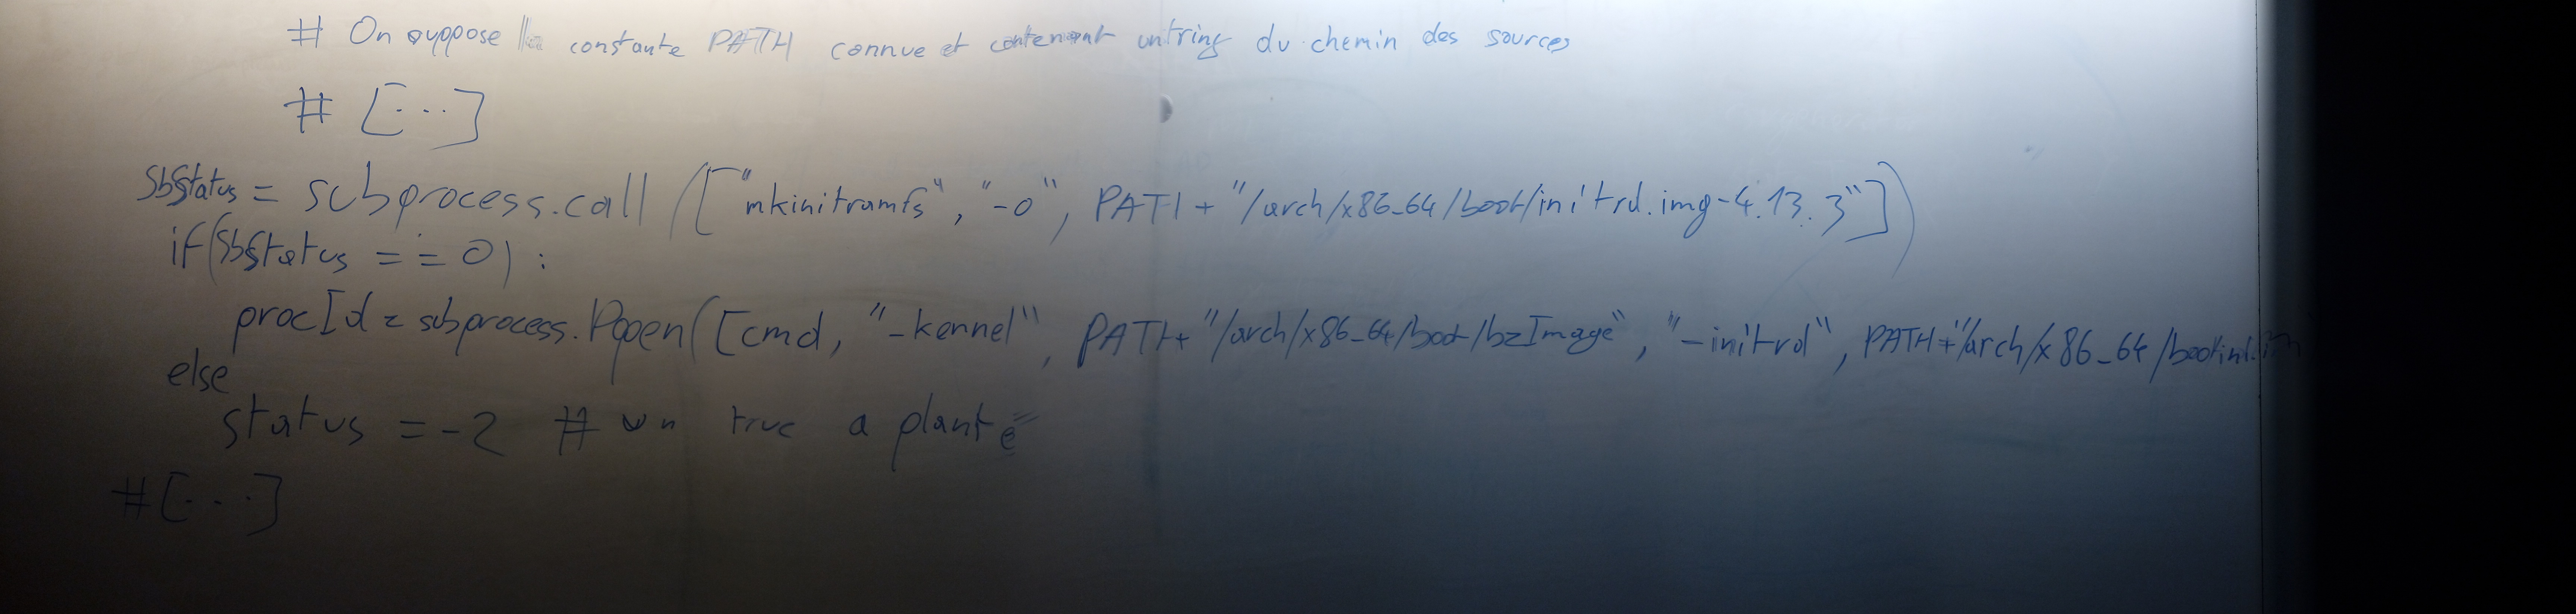 # On suppose la constante PATH connue et contenant untring du chemin des sources
# [...]
SbStatus = subprocess.call(["mkinitramfs", "-o", PATH + "/arch/x86_64/boot/initrd.img-4.13.3"])
if(SbStatus == 0) :
procId = subprocess.Popen([cmd, "-kennel", PATH+"/arch/x86_64/boot/bzImage", "-initrd", PATH+"/arch/x86_64/boot/
else
status = -2 # un truc a planté
#[...]